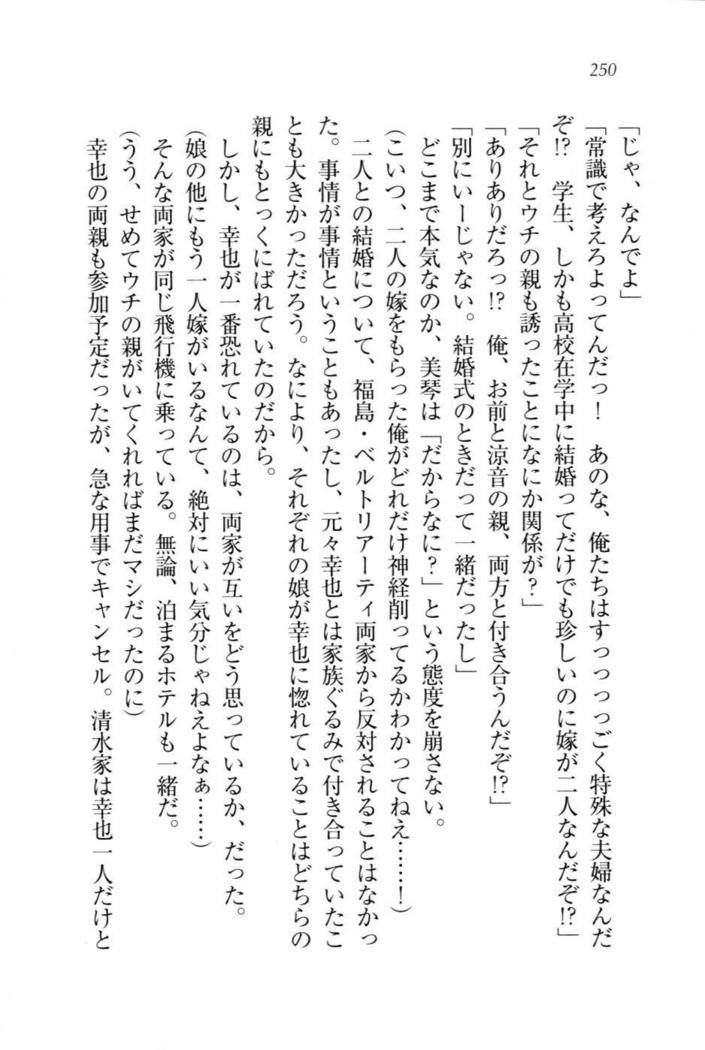 250
「じゃ、なんでよ」
「常識で考えろよってんだっ！　あのな、俺たちはすっっっっごく特殊な夫婦なんだ
ぞ!?　学生、しかも高校在学中に結婚ってだけでも珍しいのに嫁が二人なんだぞ!?」
「それとウチの親も誘ったことになにか関係が？」
「ありありだろっ!?　俺、お前と涼音の親、両方と付き合うんだぞ!?」
「別にいーじゃない。結婚式のときだって一緒だったし」
どこまで本気なのか、美琴は「だからなに？」という態度を崩さない。
（こいつ、二人の嫁をもらった俺がどれだけ神経削ってるかわかってねえ……！）
二人との結婚について、福島・ベルトリアーティ両家から反対されることはなかっ
た。事情が事情ということもあったし、元々幸也とは家族ぐるみで付き合っていたこ
とも大きかっただろう。なにより、それぞれの娘が幸也に惚れていることはどちらの
親にもとっくにばれていたのだから。
しかし、幸也が一番恐れているのは、両家が互いをどう思っているか、だった。
（娘の他にもう一人嫁がいるなんて、絶対にいい気分じゃねえよなぁ……）
そんな両家が同じ飛行機に乗っている。無論、泊まるホテルも一緒だ。
（うう、せめてウチの親がいてくれればまだマシだったのに）
幸也の両親も参加予定だったが、急な用事でキャンセル。清水家は幸也一人だけと